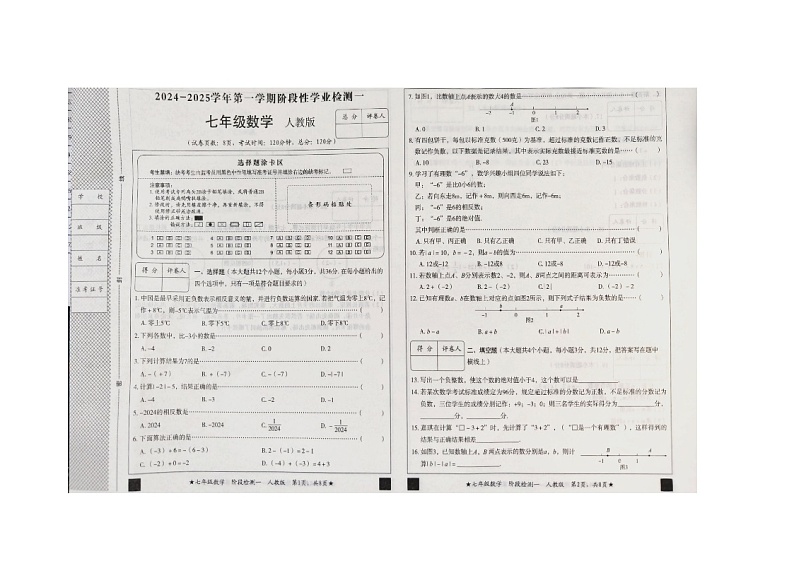 2024-2025学年第一学期阶段性学业检测一
七年级数学 人教版
总 分 评卷人
(试卷页数：8页，考试时间：120分钟，总分：120分)
选择题涂卡区
注意事项：
条形码粘贴处
学 校
班 级
姓 名
准考证号
得 分 评卷人
一、选择题（本大题共12个小题，每小题3分，共36分.在每小题给出的
四个选项中，只有一项是符合题目要求的）
1.中国是最早采用正负数表示相反意义的量，并进行负数运算的国家.若把气温为零上8℃，记
作＋8℃，则-5℃表示气温为 （ ）
A.零上5℃ B.零下5℃ C.零上8℃ D.零下8℃
2.下列各数中，比-3小的数是 （ ）
A.-4 B.-2 C.0 D.2
3.下列计算结果为7的是 （ ）
A.-（+7） B.+（-7） C.-（-7） D.-|-7|
4.计算|-2|-5，结果正确的是 （ ）
A.-4 B.-3 C.-2 D.-1
5.-2024的相反数是 （ ）
A.2024 B.-2024 C.1/2024 D.-1/2024
6.下面算法正确的是 （ ）
A.（-3）+6=-（6-3） B.2-（-1）=2-1
C.（-2）+0=-2 D.（-4）+（-3）=4+3
★七年级数学 阶段检测一 人教版 第1页，共8页★
7.如图1，比数轴上点A表示的数大4的数是 （ ）
A
-2 -1 0 1 2
图1
A.0 B.1 C.2 D.3
8.有四包饼干，每包以标准克数（500克）为基准，超过标准的克数记作正数，不足标准的克
数记作负数，以下数据是记录结果，其中表示实际克数最接近标准克数的是 （ ）
A.10 B.-8 C.23 D.-15
9.学习了有理数“-6”，数学兴趣小组四位同学说法如下：
甲：“-6”是比0小6的数；
乙：若向东走8m，记作+8m，则向西走6m，记作-6m；
丙：“-6”是6的相反数；
丁：“-6”是6的绝对值.
其中判断正确的是 （ ）
A.只有甲、丙正确 B.只有乙正确 C.只有甲、乙正确 D.只有丁错误
10.若|a|=10，b=-2，则a-b的值为 （ ）
A.12或-12 B.-12或8 C.12或-8 D.-12或-8
11.若数轴上点A、B分别表示数2、-2，则A、B两点之间的距离可表示为 （ ）
A.2+（-2） B.-2-2 C.2-|-2| D.2-（-2）
12.已知有理数a、b在数轴上对应的点如图2所示，则下列式子结果为负数的是 （ ）
图2
A.b-a B.a+b C.|a|+|b| D.a-b
得 分 评卷人
二、填空题（本大题共4个小题，每小题3分，共12分，把答案写在题中
横线上）
13.写出一个负整数，使这个数的绝对值小于4，这个数可以是____.
14.若某次数学考试标准成绩定为96分，规定超过标准的分数记为正数，不足标准的分数记为
负数，三位学生的成绩分别记作：+9；-3；0；则三名学生的实际得分为____分，
____分，____分.
15.嘉琪在计算“□-3+2”时，先计算了“3+2”，（“□是一个有理数”），这样得到的
结果与正确结果相差____.
16.如图3，已知数轴上A、B两点表示的数分别是a、b，则计
算|b|-|a|=____.
B A
-1 0 1
图3
★七年级数学 阶段检测一 人教版 第2页，共8页★